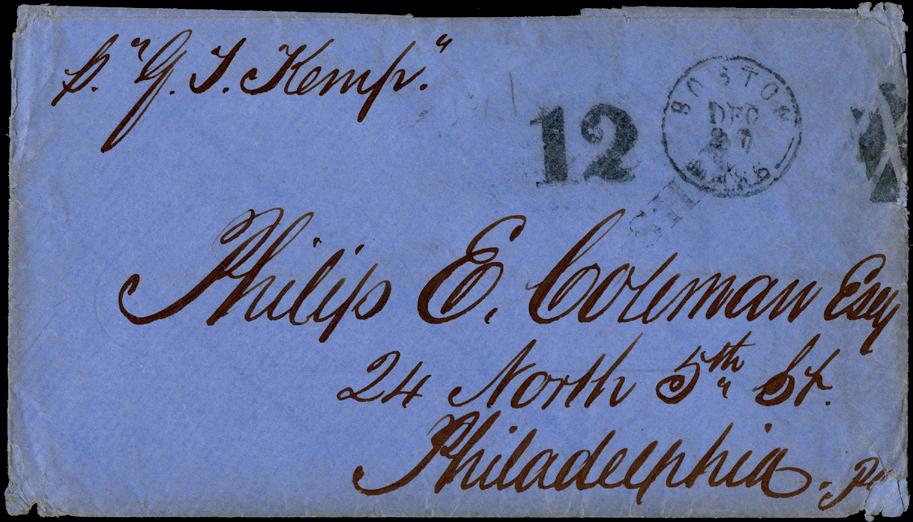 p. "G. T. Kemp."
12
BOSTON
DEC
27
MASS
SHIP
Philip E. Coleman Esq
24 North 5th St.
Philadelphia. Pa